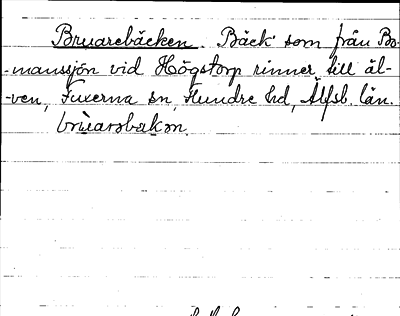 Bruarebäcken. Bäck som från Bo-
-manssjön vid Högstorp rinner till äl-
-ven, Fuxerna sn, Flundre hd, Älfsb. län.
brùarəbakən.